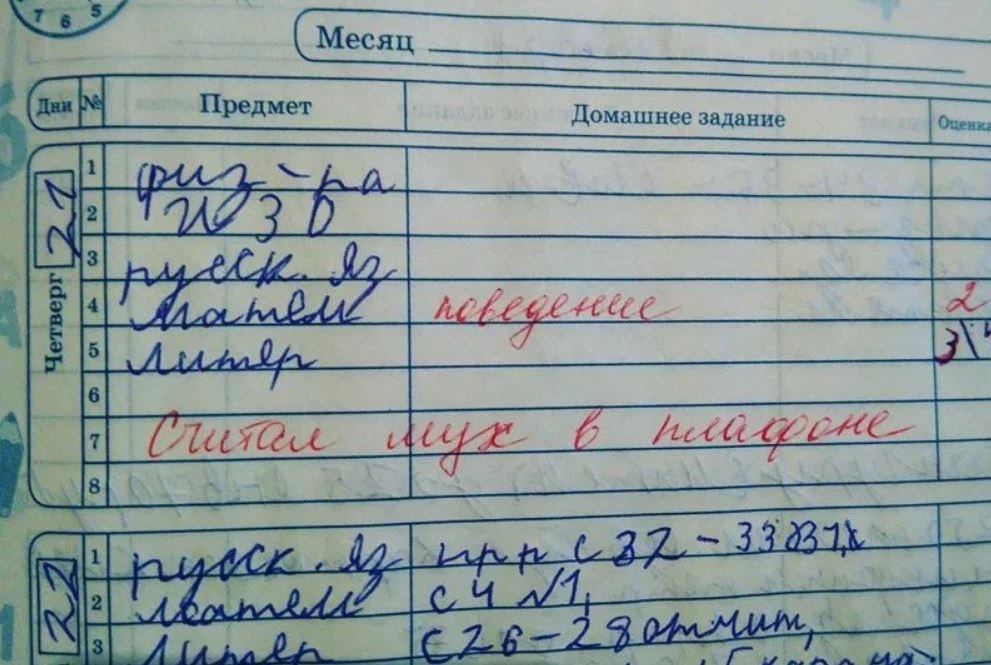 7 6 5
Месяц
Дни № Предмет Домашнее задание Оценка
Четверг 21
1 физ-ра
2 ИЗО
3 русск. яз
4 матем поведение 2
5 литер 3\
6
7 Считал мух в плафоне
8
22
1 русск. яз с 32-33
2 матем с 4 №1,
3 литер с 26-28